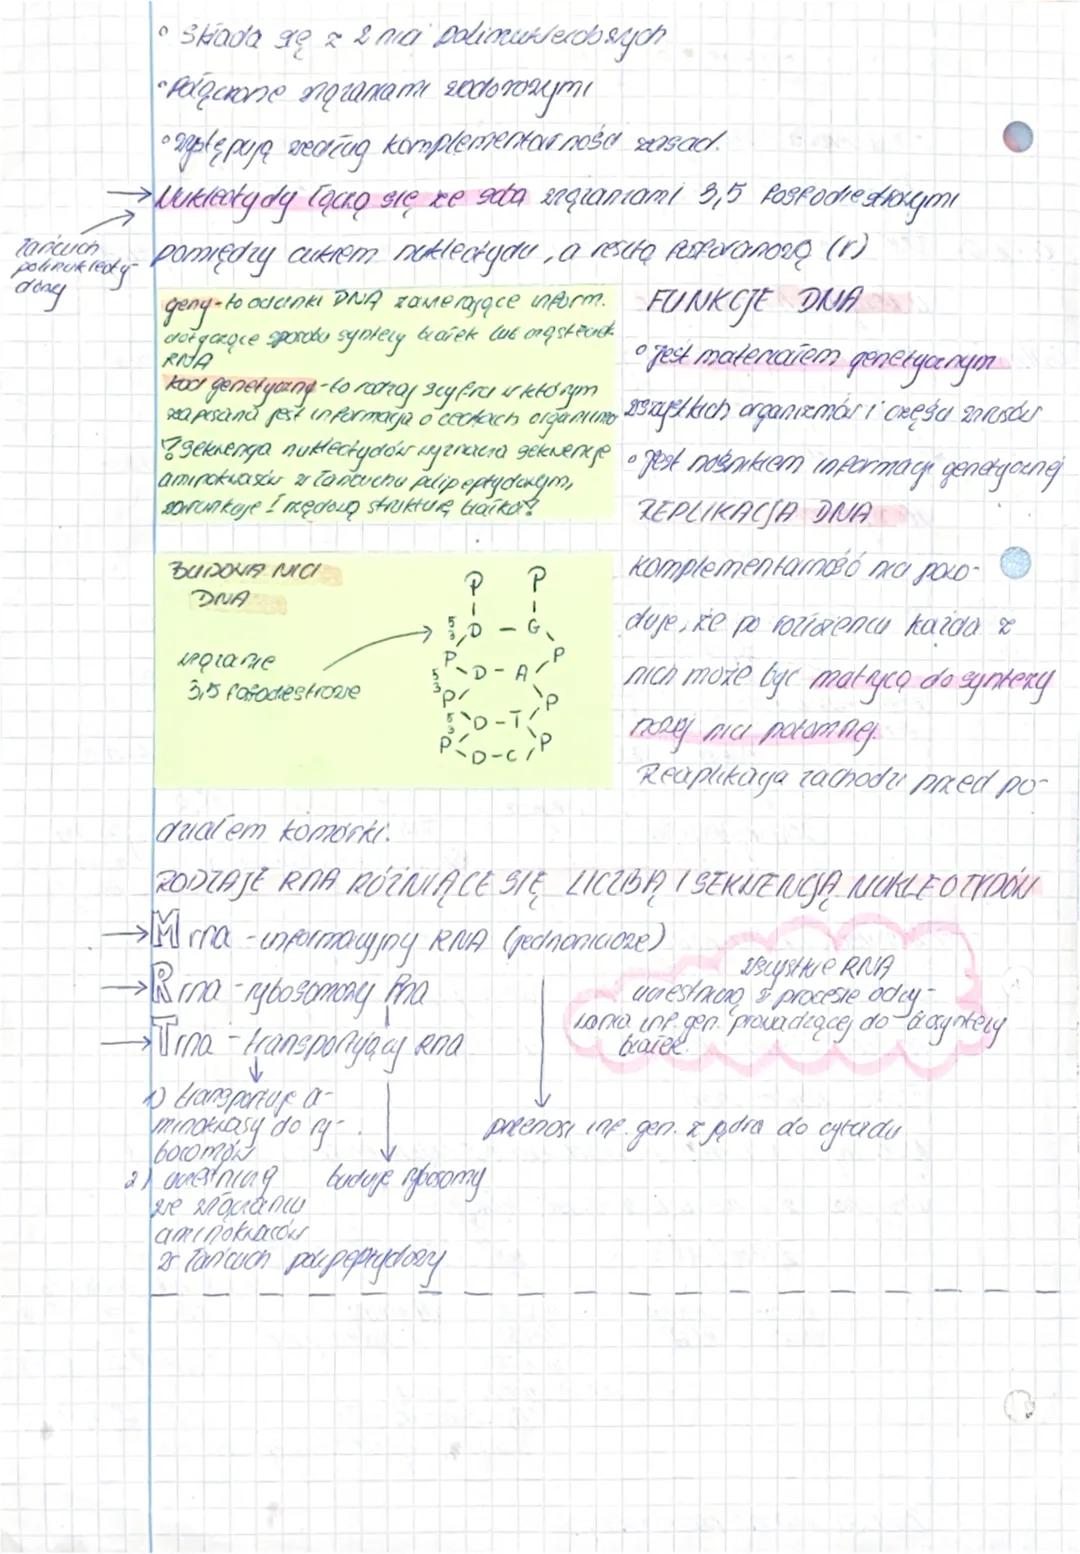 ° Składa się z 2 nici polinukleotydowych
° Połączone wiązaniami wodorowymi
° występują według komplementarności zasad.
→ Nukleotydy łączą się ze sobą wiązaniami 3,5 fosfodiestrowymi
pomiędzy cukrem nukleotydu, a resztą fosforanową (r)
łańcuch
polinukleoty-
dowy
geny - to odcinki DNA zawierające inform.
dotyczące sposobu syntezy białek lub cząsteczek
RNA
kod genetyczny - to rodzaj szyfru w którym
zapisana jest informacja o cechach organizmu
sekwencja nukleotydów wyznacza sekwencje
aminokwasów w łańcuchu polipeptydowym,
warunkuje I rzędową strukturę białka
FUNKCJE DNA
° jest materiałem genetycznym
wszystkich organizmów i części wirusów
° jest nośnikiem informacji genetycznej
REPLIKACJA DNA
komplementarność nici powo-
duje, że po rozdzieleniu każda z
nich może być matrycą do syntezy
nowej nici potomnej.
Reaplikacja zachodzi przed po-
działem komórki.
BUDOWA NICI
DNA
wiązanie
3,5 fosfodiestrowe
P P
5 3 D - G
P P
5 3 D - A
P P
5 3 D - T
P P
D - C
RODZAJE RNA RÓŻNIĄCE SIĘ LICZBĄ I SEKWENCJĄ NUKLEOTYDÓW
→ M rna - informacyjny RNA (jednoniciowe)
→ R rna - rybosomowy Rna
→ T rna - transportujący RNA
wszystkie RNA
uczestniczą w procesie odczy-
tania inf. gen. prowadzącej do syntezy
białek.
1) transportuje a-
minokwasy do ry-
bosomów
2) uczestniczą
we wiązaniu
aminokwasów
w łańcuch polipeptydowy
buduje rybosomy
przenosi inf. gen. z jądra do cytozolu